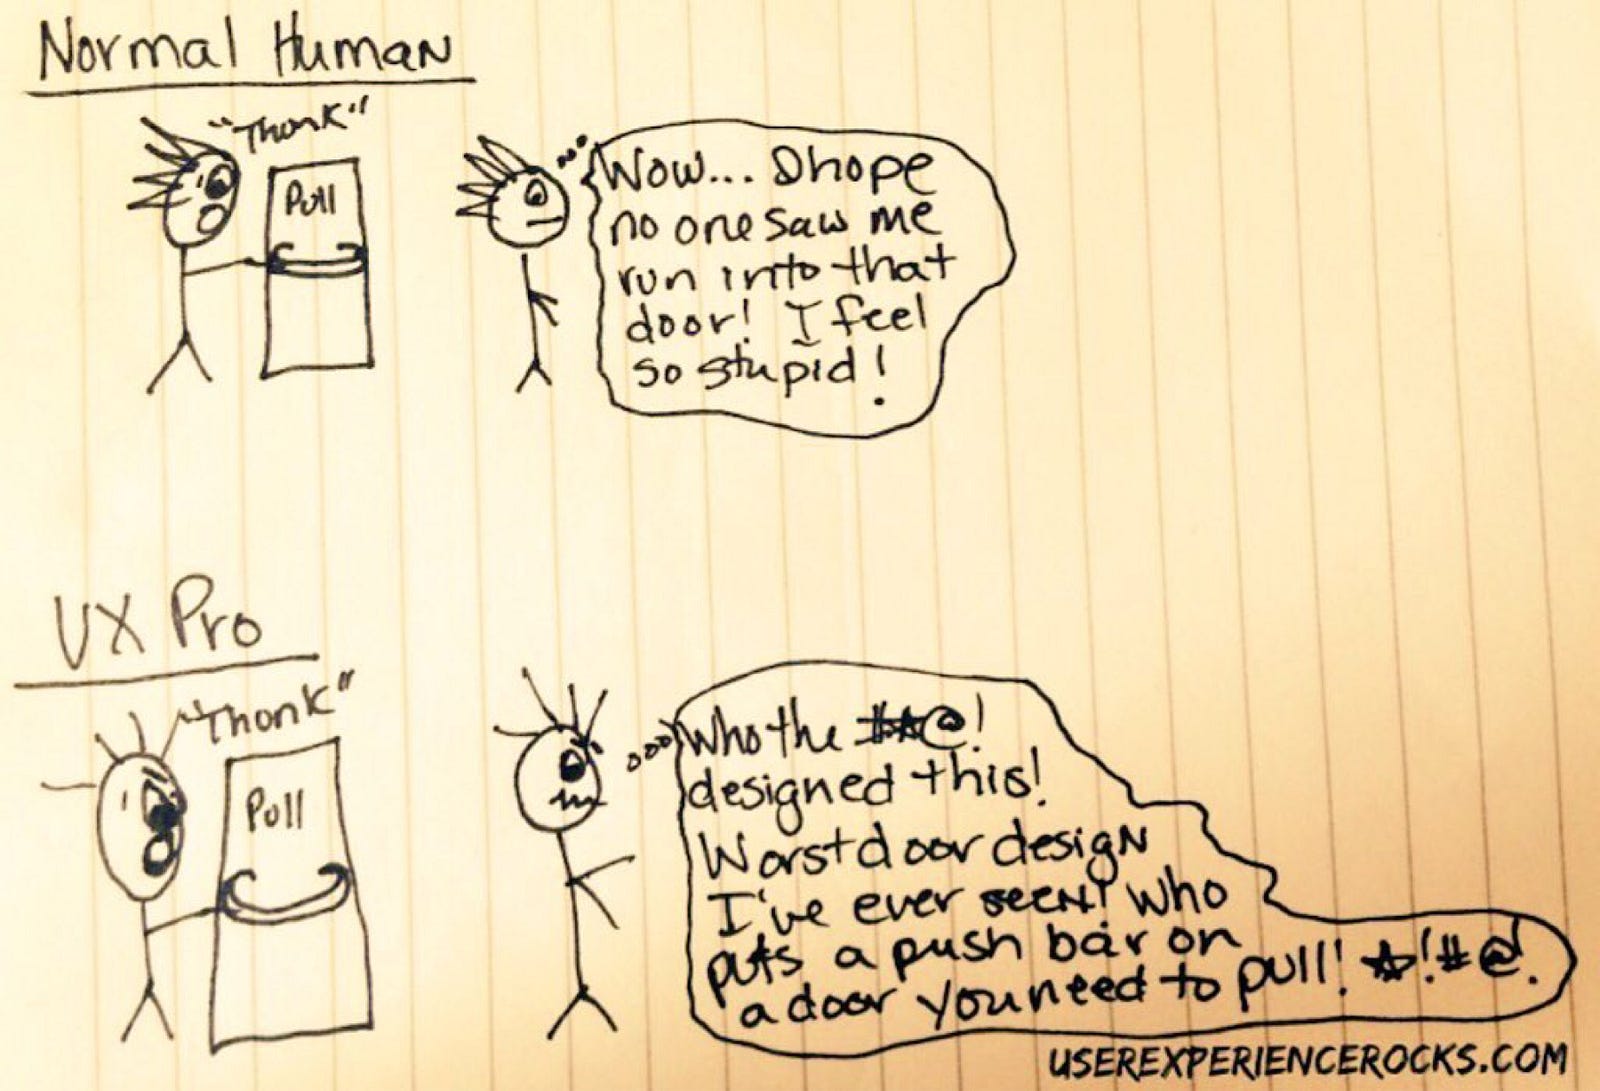 Normal Human
"Thonk"
Pull
Wow... I hope
no one saw me
run into that
door! I feel
so stupid!
UX Pro
"Thonk"
Pull
Who the #*@!
designed this!
Worst door design
I've ever seen! Who
puts a push bar on
a door you need to pull! *!#@!.
USEREXPERIENCEROCKS.COM